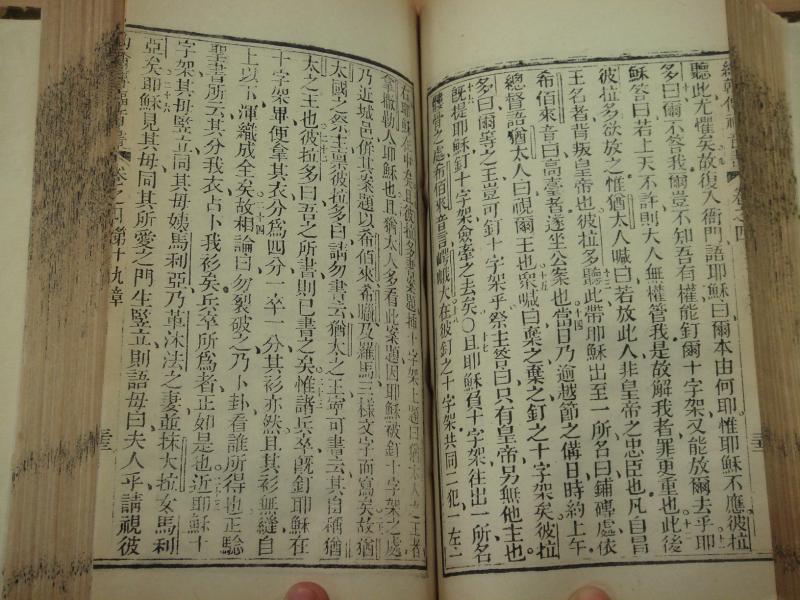 卷之四
聽此尤懼矣故復入衙門語耶穌曰爾本由何耶惟耶穌不應彼拉
多曰爾不答我爾豈不知吾有權能釘爾十字架又能放爾去乎耶
穌答曰若上天不許則大人無權管我是故解我者罪更重也此後
彼拉多欲放之惟猶太人喊曰若放此人非皇帝之忠臣也凡自冒
王名者背叛皇帝也彼拉多聽此帶耶穌出至一所名曰鋪磚處依
希佰來音曰高臺者遂坐公案也當日乃逾越節之備日時約上午
總督語猶太人曰視爾王也眾喊曰棄之棄之釘之十字架矣彼拉
多曰爾等之王豈可釘十字架乎祭主答曰只有皇帝另無他主也
既提耶穌釘十字架僉牽之去矣○且耶穌負十字架往出一所名
之處希佰來音言大在彼釘之十字架共同二犯一左一
右耶穌在中矣且彼拉多書案題插十字架上題曰猶太人之王者
拿撒勒人耶穌也且猶太人多看此案題因耶穌被釘十字架之處
乃近城邑併其案題以希佰來希臘及羅馬三樣文字而寫矣故猶
太國之祭主稟彼拉多曰請勿書云猶太之王寧可書云其自稱猶
太之王也彼拉多曰吾之所書則已書之矣惟諸兵卒既釘耶穌在
十字架畢便拿其衣分為四分一卒一分其衫亦然且其衫無縫自
上以下渾織成全矣故相論曰勿裂破之乃卜卦看誰所得也正驗
聖書所云其分我衣占卜我衫矣兵卒所為者正如是也近耶穌十
字架其母竪立同其母姨馬利亞乃革沐法之妻並抹大拉女馬利
亞矣耶穌見其母同其所愛之門生竪立則語母曰夫人乎請視彼
卷之四第十九章